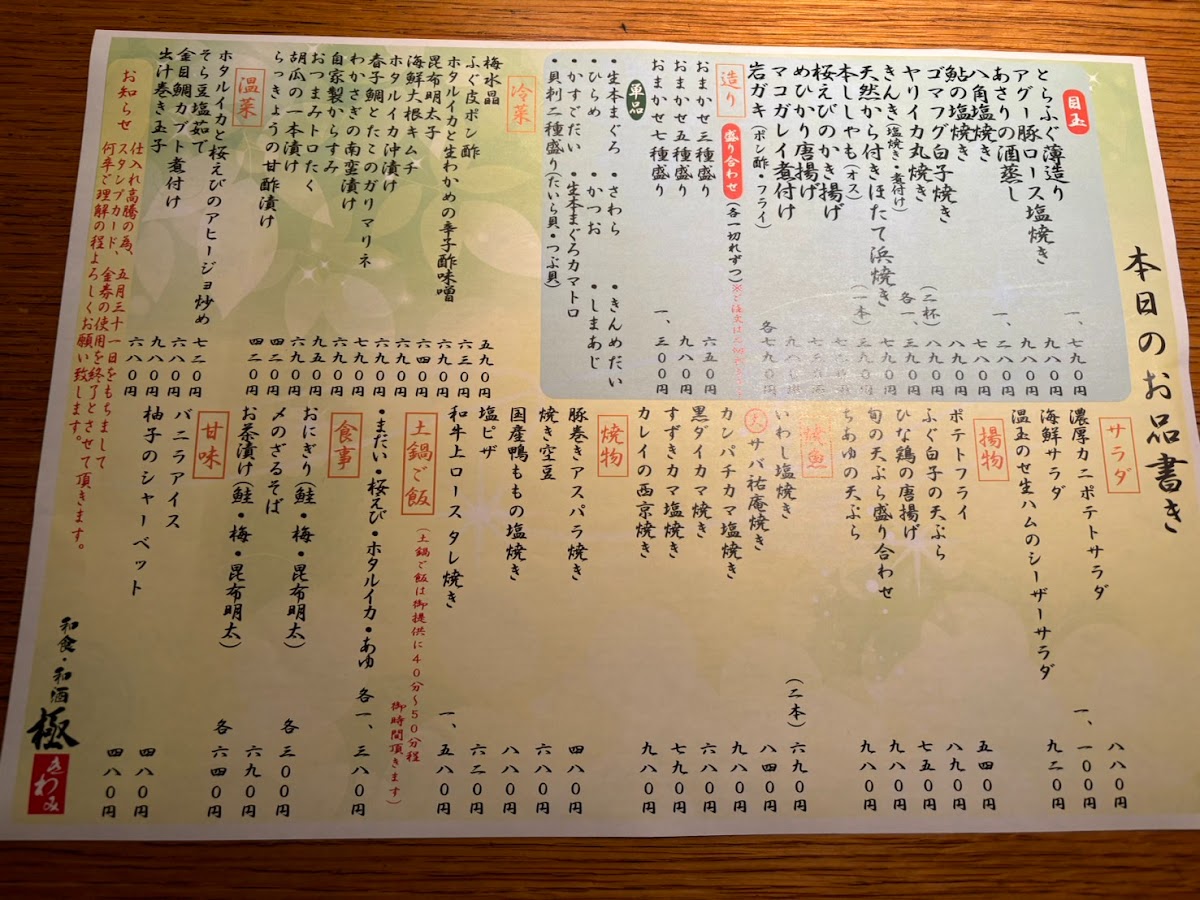 本日のお品書き
目玉
とらふぐ薄造り 一、七九〇円
アグー豚ロース塩焼き 九八〇円
あさりの酒蒸し 九八〇円
八角塩焼き 一、二八〇円
鮎の塩焼き 七八〇円
ゴマフグ白子焼き 八九〇円
ヤリイカ丸焼き (二杯) 八九〇円
きんき(塩焼き・煮付け) 各一、三九〇円
天然から付きほたて浜焼き
本ししゃも(オス) (一本) 三九〇円
桜えびのかき揚げ
めひかり唐揚げ
マコガレイ煮付け
岩ガキ(ポン酢・フライ) 各七九〇円
造り 盛り合わせ (各一切れずつ)
おまかせ三種盛り 六五〇円
おまかせ五種盛り 九八〇円
おまかせ七種盛り 一、三〇〇円
単品
・生本まぐろ ・さわら ・きんめだい
・ひらめ ・かつお ・しまあじ
・かすごだい ・生本まぐろカマトロ
・貝刺二種盛り(たいら貝・つぶ貝)
冷菜
梅水晶 五九〇円
ふぐ皮ポン酢 六三〇円
ホタルイカと生わかめの辛子酢味噌 六九〇円
昆布明太子 六四〇円
海鮮大根キムチ 六九〇円
ホタルイカ沖漬け 六九〇円
春子鯛とたこのガリマリネ 七九〇円
わかさぎの南蛮漬け 六九〇円
自家製からすみ 九五〇円
おつまみトロたく 六九〇円
胡瓜の一本漬け 四二〇円
らっきょうの甘酢漬け 四二〇円
温菜
ホタルイカと桜えびのアヒージョ炒め 七二〇円
そら豆塩茹で 六八〇円
金目鯛カブト煮付け 九八〇円
出汁巻き玉子 六八〇円
お知らせ 仕入れ高騰の為、五月三十一日をもちまして
スタンプカード、金券の使用を終了とさせて頂きます。
何卒ご理解の程よろしくお願い致します。
サラダ
濃厚カニポテトサラダ 八八〇円
海鮮サラダ 一、一〇〇円
温玉のせ生ハムのシーザーサラダ 九二〇円
揚物
ポテトフライ 五四〇円
ふぐ白子の天ぷら 八九〇円
ひな鶏の唐揚げ 七五〇円
旬の天ぷら盛り合わせ 九八〇円
ちあゆの天ぷら 八八〇円
焼魚
いわし塩焼き (二本) 六九〇円
大サバ祐庵焼き 八四〇円
カンパチカマ塩焼き 九八〇円
黒ダイカマ焼き 六八〇円
すずきカマ塩焼き 七九〇円
カレイの西京焼き 九八〇円
焼物
豚巻きアスパラ焼き 四八〇円
焼き空豆 六八〇円
国産鴨ももの塩焼き 八八〇円
塩ピザ 六二〇円
和牛上ロースタレ焼き 一、五八〇円
土鍋ご飯 (土鍋ご飯は御提供に40分〜50分程
御時間頂きます)
・まだい・桜えび・ホタルイカ・あゆ 各一、三八〇円
食事
おにぎり(鮭・梅・昆布明太) 各三〇〇円
〆のざるそば 六九〇円
お茶漬け(鮭・梅・昆布明太) 各六四〇円
甘味
バニラアイス 四八〇円
柚子のシャーベット 四八〇円
和食・和酒
極
きわみ